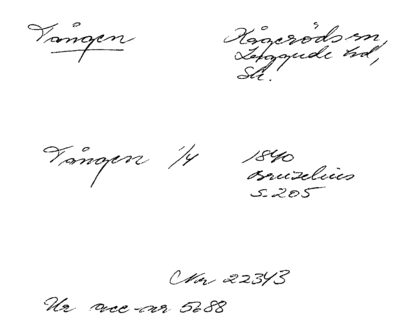 Tången Kågeröds sn,
Luggude hd,
Sk.
Tången 1/4 1840
Bruzelius
s. 205
Nr 22343
Ur acc-nr 5688